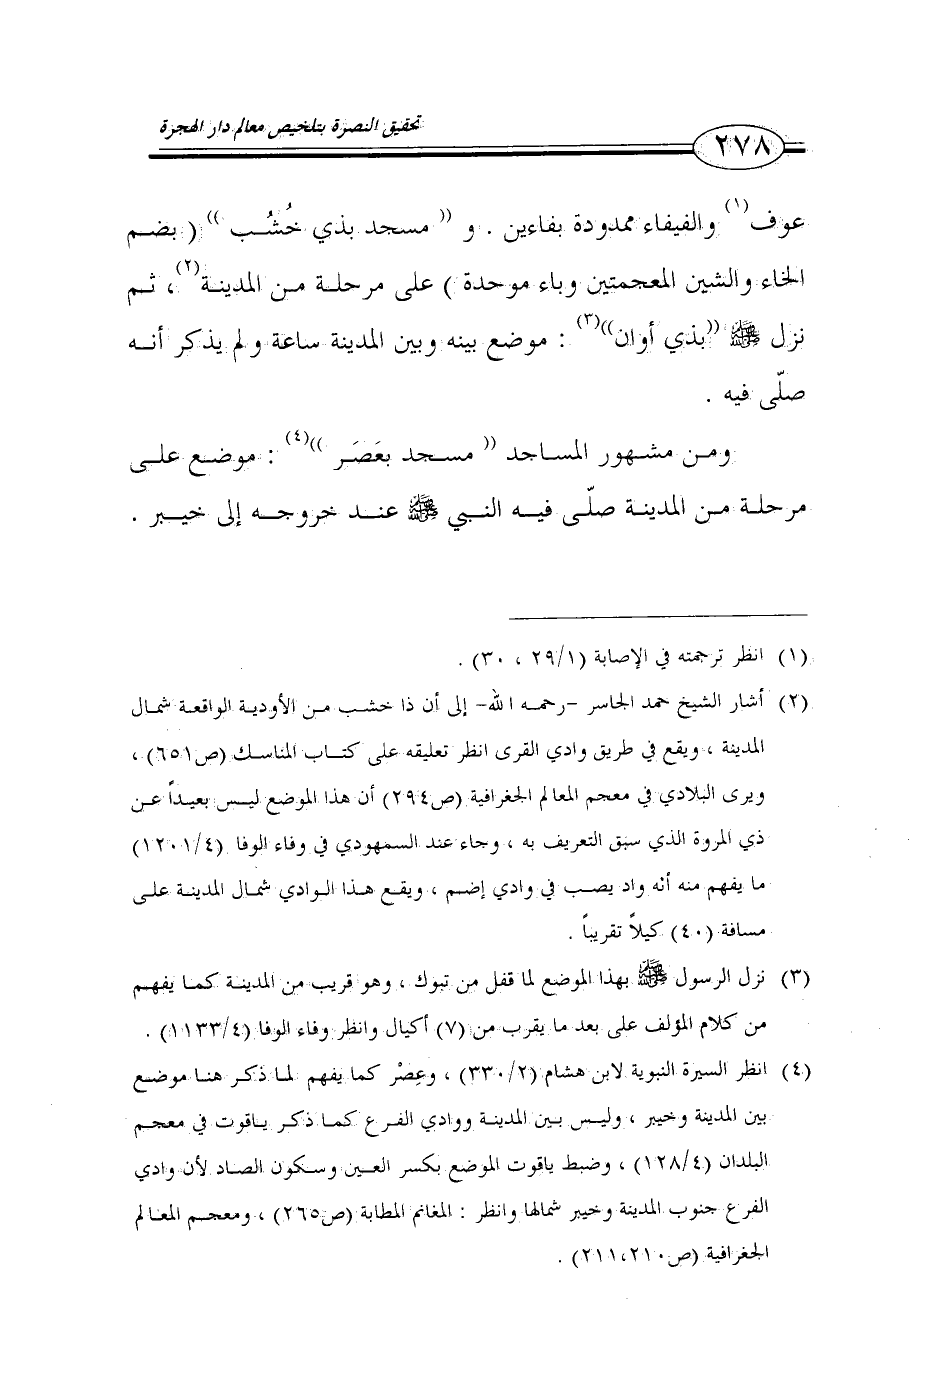 تحقيق النصرة بتلخيص معالم دار الهجرة
٢٧٨
عوف(١) والفيفاء ممدودة بفاءين . و « مسجد بذي خُشُب » ( بضم
الخاء والشين المعجمتين وباء موحدة ) على مرحلة من المدينة(٢) ، ثم
نزل ﷺ «بذي أوان»(٣) : موضع بينه وبين المدينة ساعة ولم يذكر أنه
صلّى فيه .
ومن مشهور المساجد « مسجد بعَصَر »(٤) : موضع على
مرحلة من المدينة صلّى فيه النبي ﷺ عند خروجه إلى خيبر .
(١) انظر ترجمته في الإصابة (٢٩/١ ، ٣٠) .
(٢) أشار الشيخ حمد الجاسر -رحمه الله- إلى أن ذا خشب من الأودية الواقعة شمال
المدينة ، ويقع في طريق وادي القرى انظر تعليقه على كتاب المناسك (ص٦٥١) ،
ويرى البلادي في معجم المعالم الجغرافية (ص٢٩٤) أن هذا الموضع ليس بعيداً عن
ذي المروة الذي سبق التعريف به ، وجاء عند السمهودي في وفاء الوفا (١٢٠١/٤)
ما يفهم منه أنه واد يصب في وادي إضم ، ويقع هذا الوادي شمال المدينة على
مسافة (٤٠) كيلاً تقريباً .
(٣) نزل الرسول ﷺ بهذا الموضع لما قفل من تبوك ، وهو قريب من المدينة كما يفهم
من كلام المؤلف على بعد ما يقرب من (٧) أكيال وانظر وفاء الوفا (١١٣٣/٤) .
(٤) انظر السيرة النبوية لابن هشام (٣٣٠/٢) ، وعِصْر كما يفهم لما ذكر هنا موضع
بين المدينة وخيبر ، وليس بين المدينة ووادي الفرع كما ذكر ياقوت في معجم
البلدان (١٢٨/٤) ، وضبط ياقوت الموضع بكسر العين وسكون الصاد لأن وادي
الفرع جنوب المدينة وخيبر شمالها وانظر : المغانم المطابة (ص٢٦٥) ، ومعجم المعالم
الجغرافية (ص٢١٠،٢١١) .